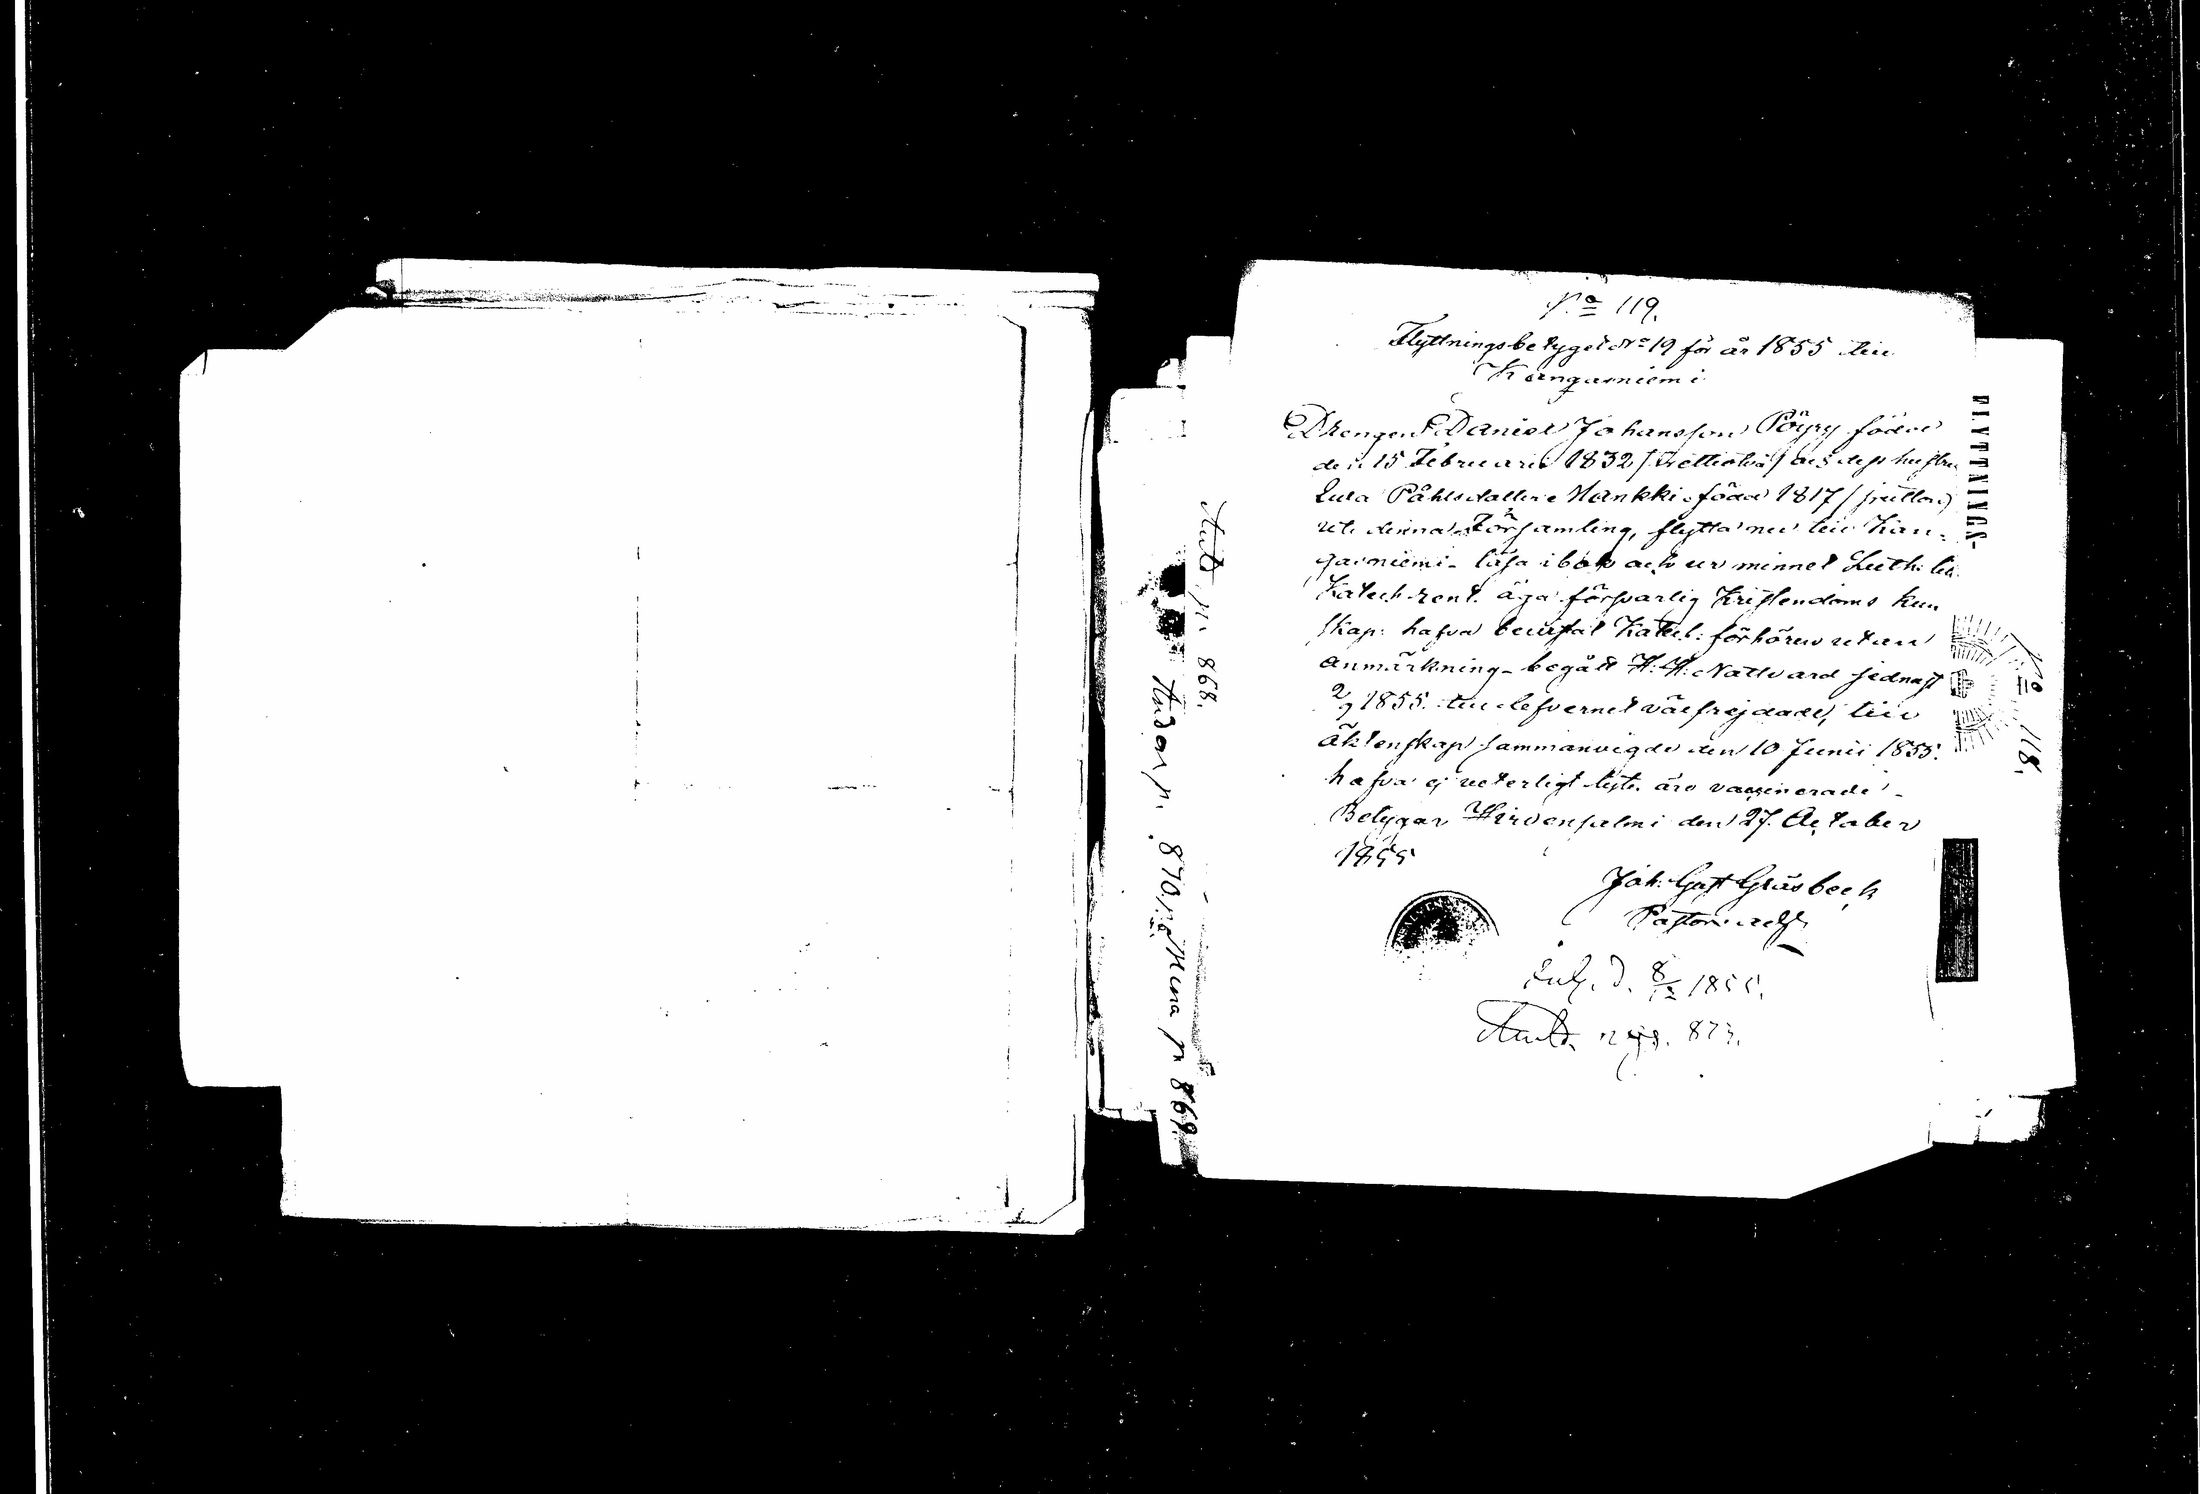 No 119.
Flyttningsbetyget No 19 för år 1855 till
Kangasniemi
Drengen Daniel Johansson Pöyry född
den 15 Februarii 1832 / trettiotvå / och dess hustru
Påhlsdotter Mankki född 1817 / sjutton /
uti denna Församling, flytta nu till Kan-
gasniemi - läsa i bok och ur minnet Luth: lilla
Katech: äga försvarlig Kristendoms kun
skap: hafva bevistat Katech: förhören utan
anmärkning - begått H: H: Nattvard sednast
2/9 1855. till lefvernet välfrejdade, till
äktenskap sammanvigde den 10 Junii 1855.
hafva ej veterligt äro vaccinerade -
Betygar Hirvensalmi den 27. October
1855
Joh: Gust Gråsbeck
Pastor:
d. 8/12 1855.
873.
FLYTTNINGS-
No 118.
p. 868.
p. 870,
p. 869.